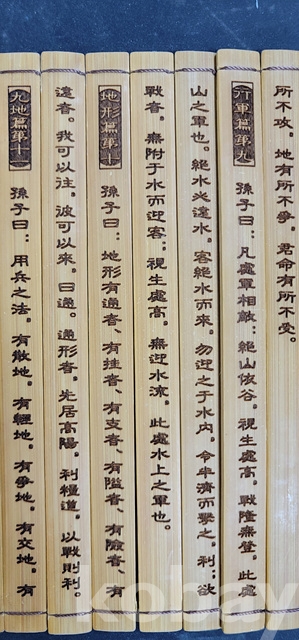 所不攻。地有所不爭。君命有所不受。
行軍篇第九 孫子曰：凡處軍相敵：絕山依谷。視生處高。戰隆無登。此處
山之軍也。絕水必遠水。客絕水而來。勿迎之于水內。令半濟而擊之。利；欲
戰者。無附于水而迎客：視生處高。無迎水流。此處水上之軍也。
地形篇第十 孫子曰：地形有通者、有挂者、有支者、有隘者、有險者、有
遠者。我可以往。彼可以來。曰通。通形者。先居高陽。利糧道。以戰則利。
九地篇第十 孫子曰：用兵之法。有散地。有輕地。有爭地。有交地。有
kobay